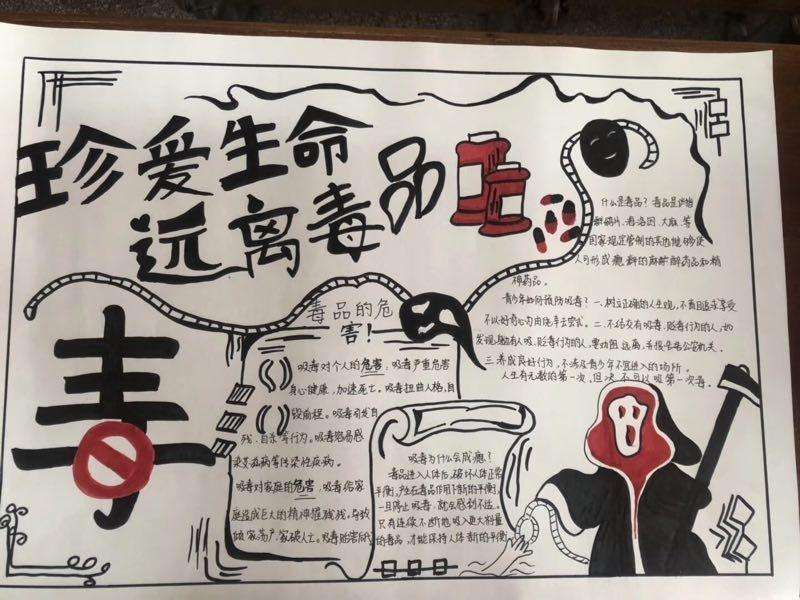 珍爱生命
远离毒品
毒
什么是毒品？毒品是指
鸦片、海洛因、大麻、等
国家规定管制的其他能够使
人形成瘾癖的麻醉药品和精
神药品。
青少年如何预防吸毒？一、树立正确的人生观，不盲目追求享受
不以好奇心为由去尝试。二、不结交有吸毒、贩毒行为的人，如
发现有人吸、贩毒行为的人，要远离，并报告公安机关。
三、养成良好行为，不涉及青少年不宜进入的场所。
人生有无数的第一次，但决不可以吸第一次毒。
毒品的危
害！
吸毒对个人的危害：吸毒严重危害
身心健康，加速死亡。吸毒扭曲人格，自
毁前程。吸毒引发自
残、自杀等行为。吸毒容易感
染艾滋病等传染性疾病。
吸毒对家庭的危害：吸毒给家
庭造成巨大的精神摧残，导致
倾家荡产，家破人亡。吸毒贻害后代
吸毒为什么会成瘾？
毒品进入人体后，破坏人体正常
平衡，产生在毒品作用下新的平衡，
一旦停止吸毒，就会感到不适。
只有连续不断地吸入更大剂量
的毒品，才能保持人体新的平衡